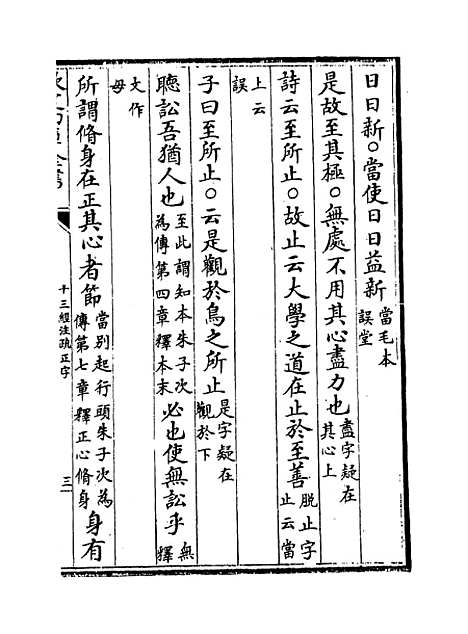 日日新○當使日日益新當毛本誤堂
是故至其極○無處不用其心盡力也盡字疑在其心上
詩云至所止○故止云大學之道在止於至善脱止字止云當
上云誤
子曰至所止○云是觀於鳥之所止是字疑在觀於下
聽訟吾猶人也至此謂知本朱子次為傳第四章釋本末必也使無訟乎無釋
文作毋
所謂脩身在正其心者節當別起行頭朱子次為傳第七章釋正心脩身身有
十三經注疏正字
三